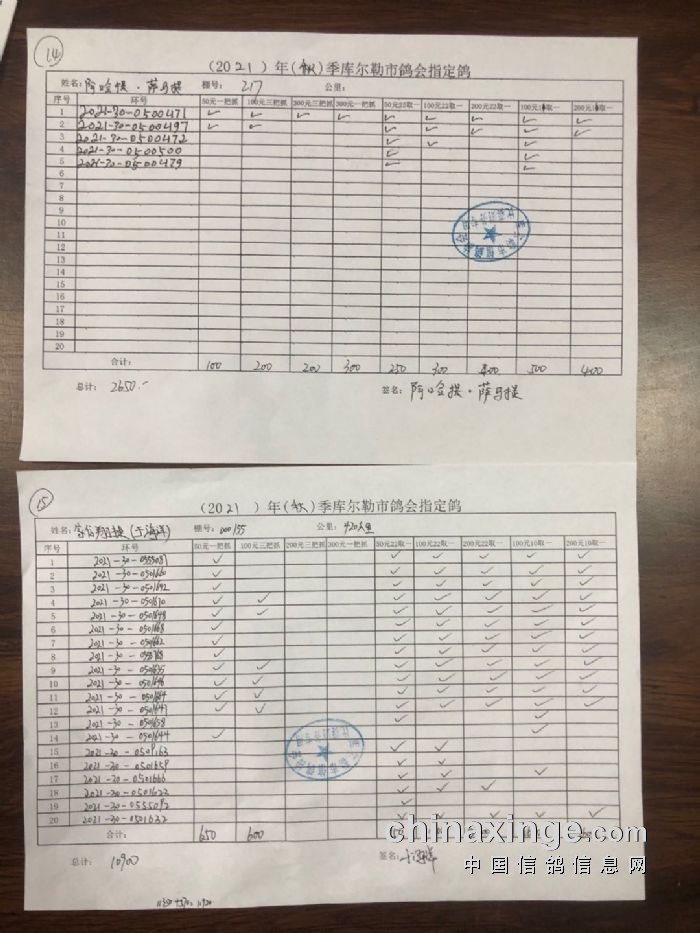 14
（2021）年（秋）季库尔勒市鸽会指定鸽
姓名：阿哈提·萨马提 棚号：217 公里：
序号 环号 50元一把抓 100元三把抓 200元三把抓 300元一把抓 50元22取一 100元22取一 200元22取一 100元10取一 200元10取一
1 2021-30-0500471 ✓ ✓ ✓ ✓ ✓ ✓ ✓ ✓ ✓
2 2021-30-0500497 ✓ ✓ ✓ ✓ ✓ ✓ ✓
3 2021-30-0500472 ✓ ✓ ✓
4 2021-30-0500500 ✓ ✓
5 2021-30-0500479 ✓ ✓
6
7
8
9
10
11
12
13
14
15
16
17
18
19
20
合计： 100 200 200 300 250 300 400 500 400
总计： 2650.- 签名：阿哈提·萨马提
15
（2021）年（秋）季库尔勒市鸽会指定鸽
姓名： （于海洋） 棚号：000155 公里：420公里
序号 环号 50元一把抓 100元三把抓 200元三把抓 300元一把抓 50元22取一 100元22取一 200元22取一 100元10取一 200元10取一
1 2021-30-0555081 ✓ ✓ ✓ ✓ ✓ ✓
2 2021-30-0501660 ✓ ✓ ✓ ✓ ✓ ✓
3 2021-30-0501692 ✓ ✓ ✓ ✓ ✓ ✓
4 2021-30-0501610 ✓ ✓ ✓ ✓ ✓ ✓ ✓
5 2021-30-0501648 ✓ ✓ ✓ ✓ ✓ ✓ ✓
6 2021-30-0501668 ✓ ✓ ✓ ✓ ✓ ✓
7 2021-30-0501662 ✓ ✓ ✓ ✓ ✓ ✓
8 2021-30- ✓ ✓ ✓ ✓ ✓ ✓
9 2021-30-0501635 ✓ ✓ ✓ ✓ ✓ ✓ ✓
10 2021-30-0501696 ✓ ✓ ✓ ✓ ✓ ✓ ✓
11 2021-30-0501664 ✓ ✓ ✓ ✓ ✓ ✓ ✓
12 2021-30-0501641 ✓ ✓ ✓ ✓ ✓ ✓ ✓
13 2021-30-0501658 ✓ ✓
14 2021-30-0501644 ✓ ✓
15 2021-30-0509163 ✓ ✓
16 2021-30-0501659 ✓ ✓
17 2021-30-0501666 ✓ ✓ ✓
18 2021-30-0501622 ✓ ✓ ✓
19 2021-30-0555092 ✓
20 2021-30-0501632 ✓ ✓ ✓ ✓ ✓
合计： 650 600
总计： 10900 签名：于海洋
chinaxinge.com
中国信鸽信息网